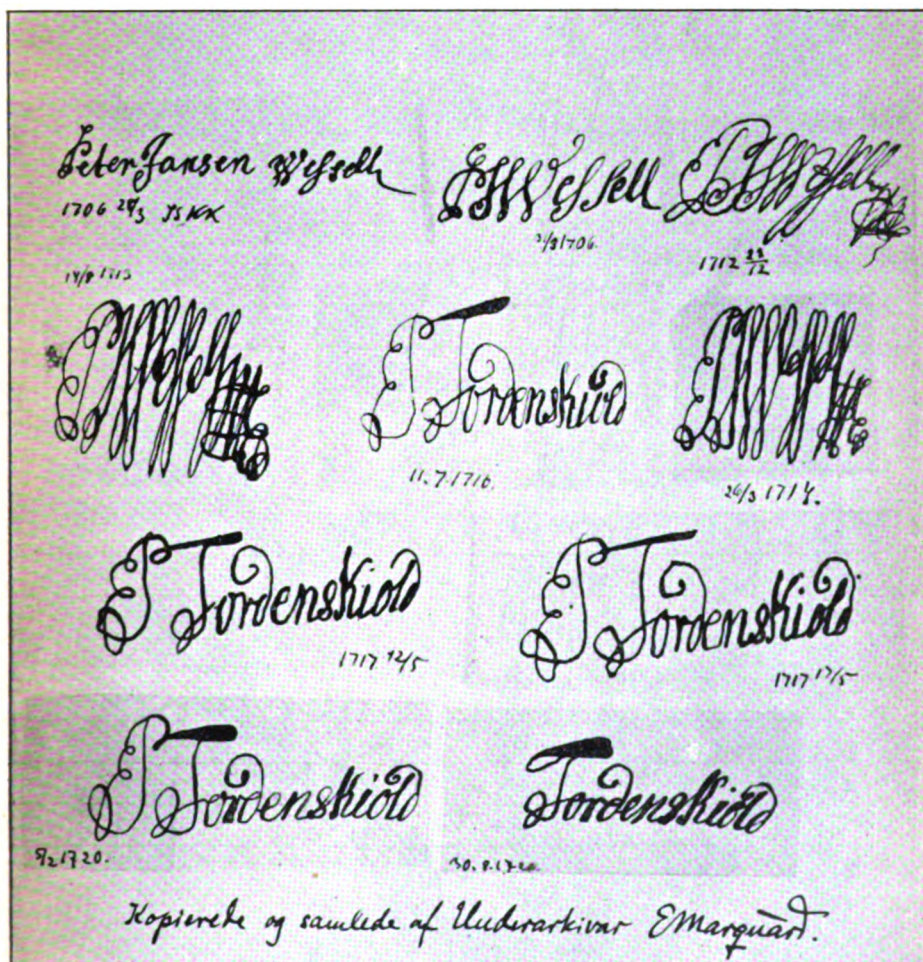 Peter Jansen Wessell
1706 28/3 SSKK
PJWessell
3/8 1706.
PJWessell
1712 23/12
PJWessell
P Tordenskiold
11.7.1716.
PJWessell
26/3 1714.
P Tordenskiold
1717 12/5
P Tordenskiold
1717 17/5
P Tordenskiold
8/2 1720.
Tordenskiold
30.8.1720.
Kopierede og samlede af Underarkivar EMarquard.